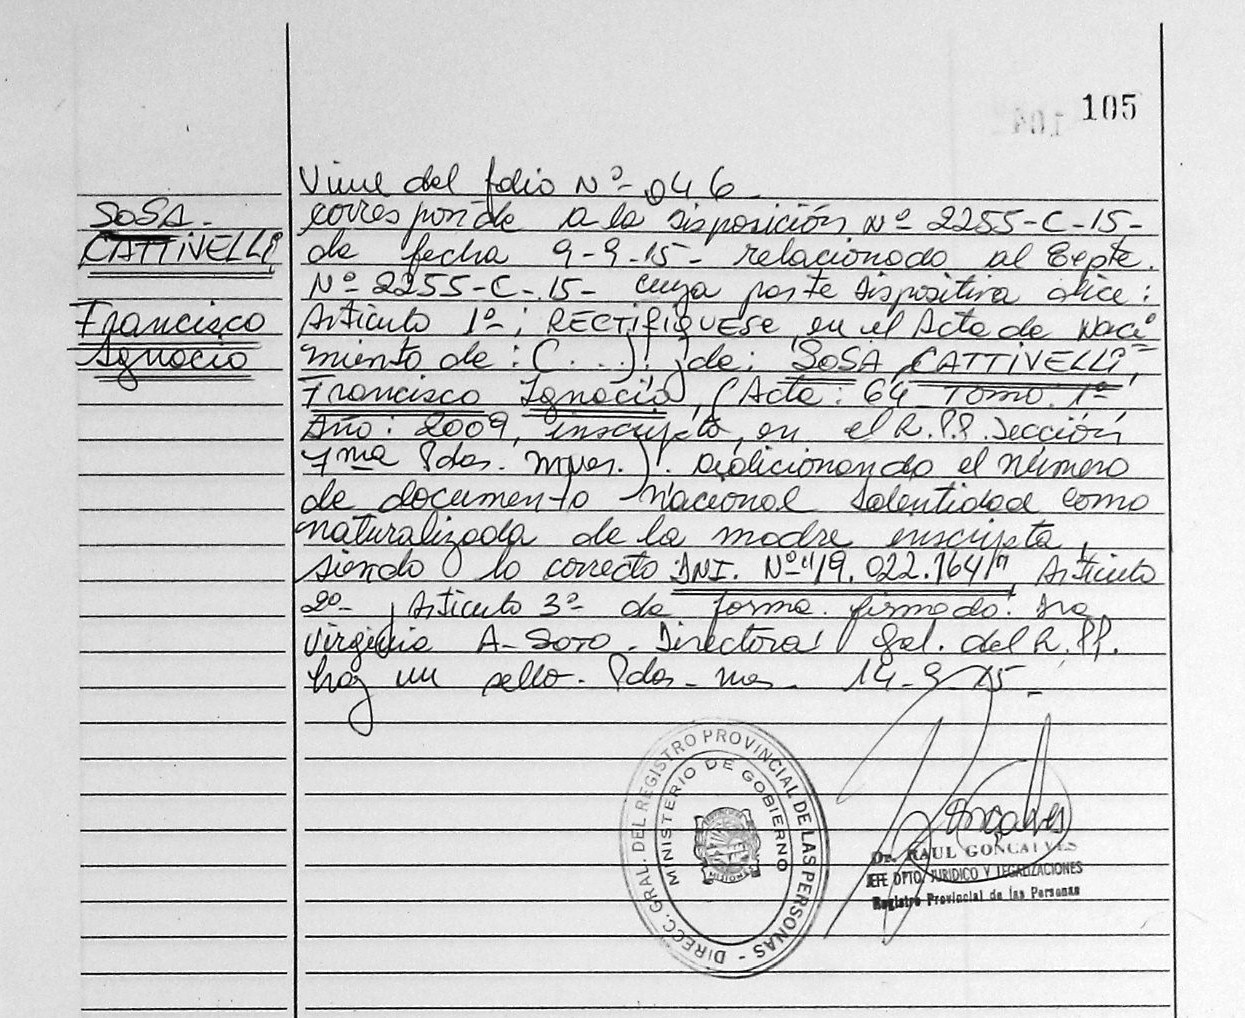 105
Viene del folio Nº- 046
SOSA -
CATTIVELLI,
Francisco
Ignacio
corresponde a la disposición Nº 2255-C-15-
de fecha 9-9-15- relacionado al Expte.
Nº- 2255-C-15- cuya parte dispositiva dice:
Artículo 1º-; RECTIFIQUESE en el Acta de Naci=
miento de: (...). de: SOSA CATTIVELLI,
Francisco Ignacio, (Acta: 64 Tomo 1º
Año: 2009, inscripto, en el R.P.P. Sección
7ma Pdas. Mnes.). adicionando el número
de documento Nacional Identidad como
naturalizada de la madre inscripta,
siendo lo correcto DNI. Nº "19.022.164", Artículo
2º-, Artículo 3º- de forma. firmado. Dra.
Virginia A- Soto - Directora Gral. del R.P.P.
hay un sello. Pdas - mes - 14-9-15-
DIRECC. GRAL. DEL REGISTRO PROVINCIAL DE LAS PERSONAS -
MINISTERIO DE GOBIERNO
MISIONES
Dr. RAUL GONCALVES
JEFE DPTO. JURIDICO Y LEGALIZACIONES
Registro Provincial de las Personas